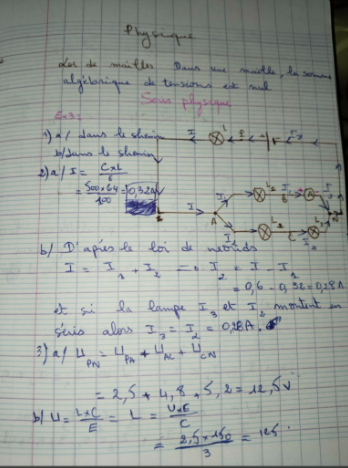 Physique
Loi de mailles Dans une maille, la somme
algébrique de tensions est nul
Sous physique
Ex3:
1) a/ dans le shéma
b/ dans le shéma
2) a/ I = CxL/E
= 500x64/100 = 0,32A
b/ D'après le loi de nœuds
I = I1 + I2 => I2 = I - I1
= 0,6 - 0,32 = 0,28A
et si la lampe I3 et I2 montent en
séris alors I3 = I2 = 0,28A.
3) a/ UPN = UPA + UAC + UCN
= 2,5 + 4,8 + 5,2 = 12,5v
b/ U = LxC/E = L = UxE/C
= 2,5x150/3 = 125